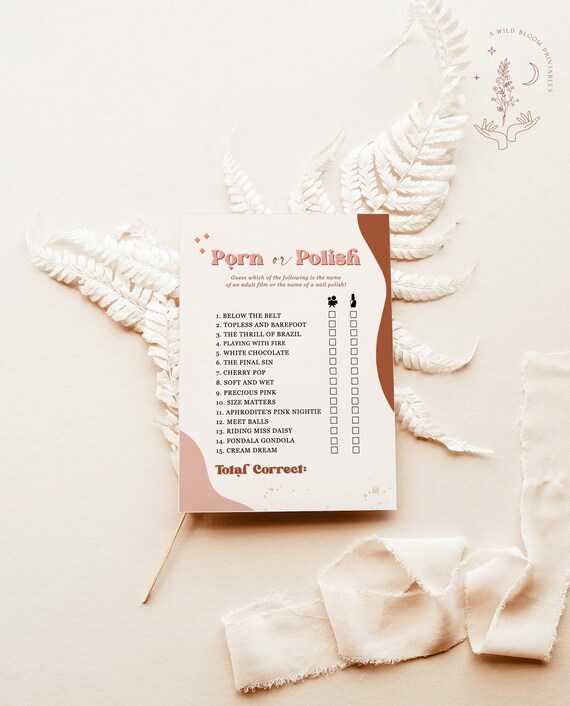 A WILD BLOOM PRINTABLES
Porn or Polish
Guess which of the following is the name
of an adult film or the name of a nail polish!
1. BELOW THE BELT
2. TOPLESS AND BAREFOOT
3. THE THRILL OF BRAZIL
4. PLAYING WITH FIRE
5. WHITE CHOCOLATE
6. THE FINAL SIN
7. CHERRY POP
8. SOFT AND WET
9. PRECIOUS PINK
10. SIZE MATTERS
11. APHRODITE'S PINK NIGHTIE
12. MEET BALLS
13. RIDING MISS DAISY
14. FONDALA GONDOLA
15. CREAM DREAM
Total Correct: